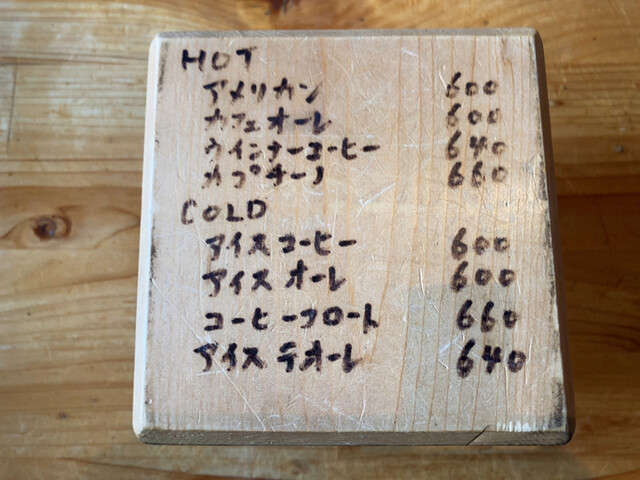 HOT
アメリカン 600
カフェオーレ 600
ウインナーコーヒー 640
カプチーノ 660
COLD
アイスコーヒー 600
アイスオーレ 600
コーヒーフロート 660
アイステオーレ 640